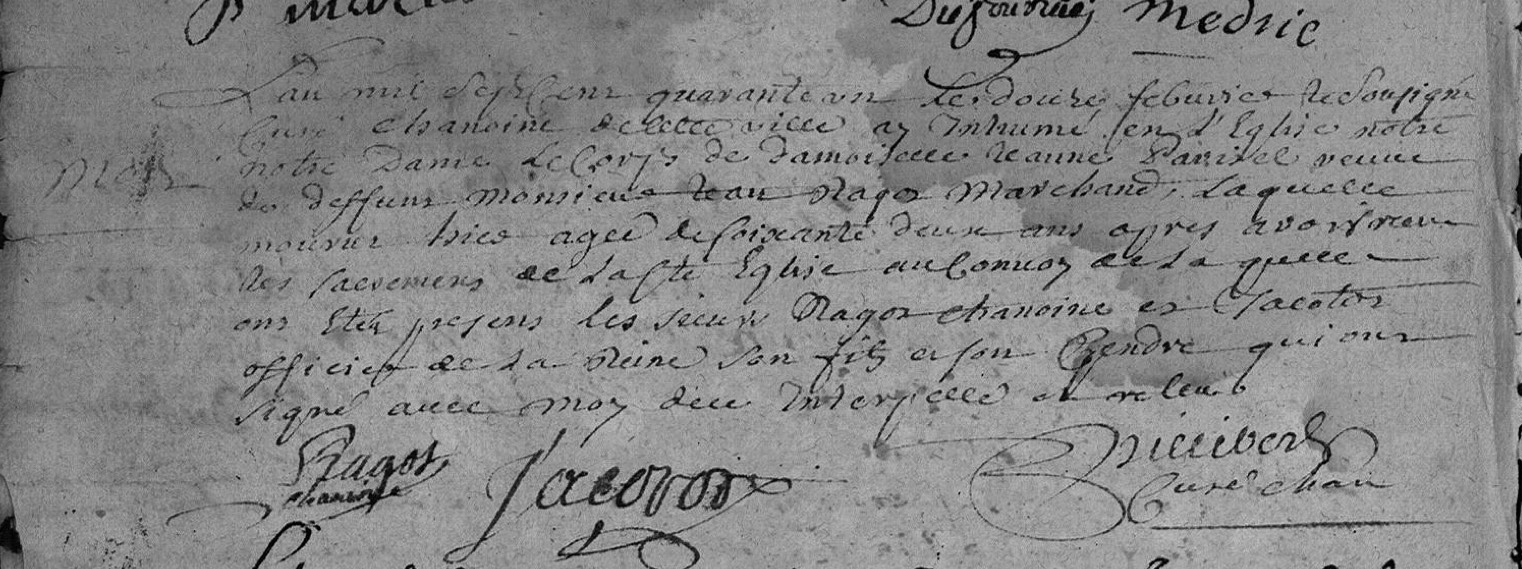 Medric
L'an mil Sept Cent quarante un Le douze febvrier Je Soussigné
Curé Chanoine de cette ville ay Inhumé en L'Eglise notre
notre Dame Le Corps de damoiselle Jeanne veuve
de deffunt Monsieur Jean Ragot Marchand, Laquelle
mourut hier agée de soixante deux ans apres avoir receu
les sacremens de La Ste Eglise au Convoy de La quelle
ont Eté presens les sieurs Ragot chanoine et Jacotot
officier de La Reine son fils et son Gendre qui ont
signé avec moy de ce Interpellé
Ragot Jacotot
chanoine Curé chan